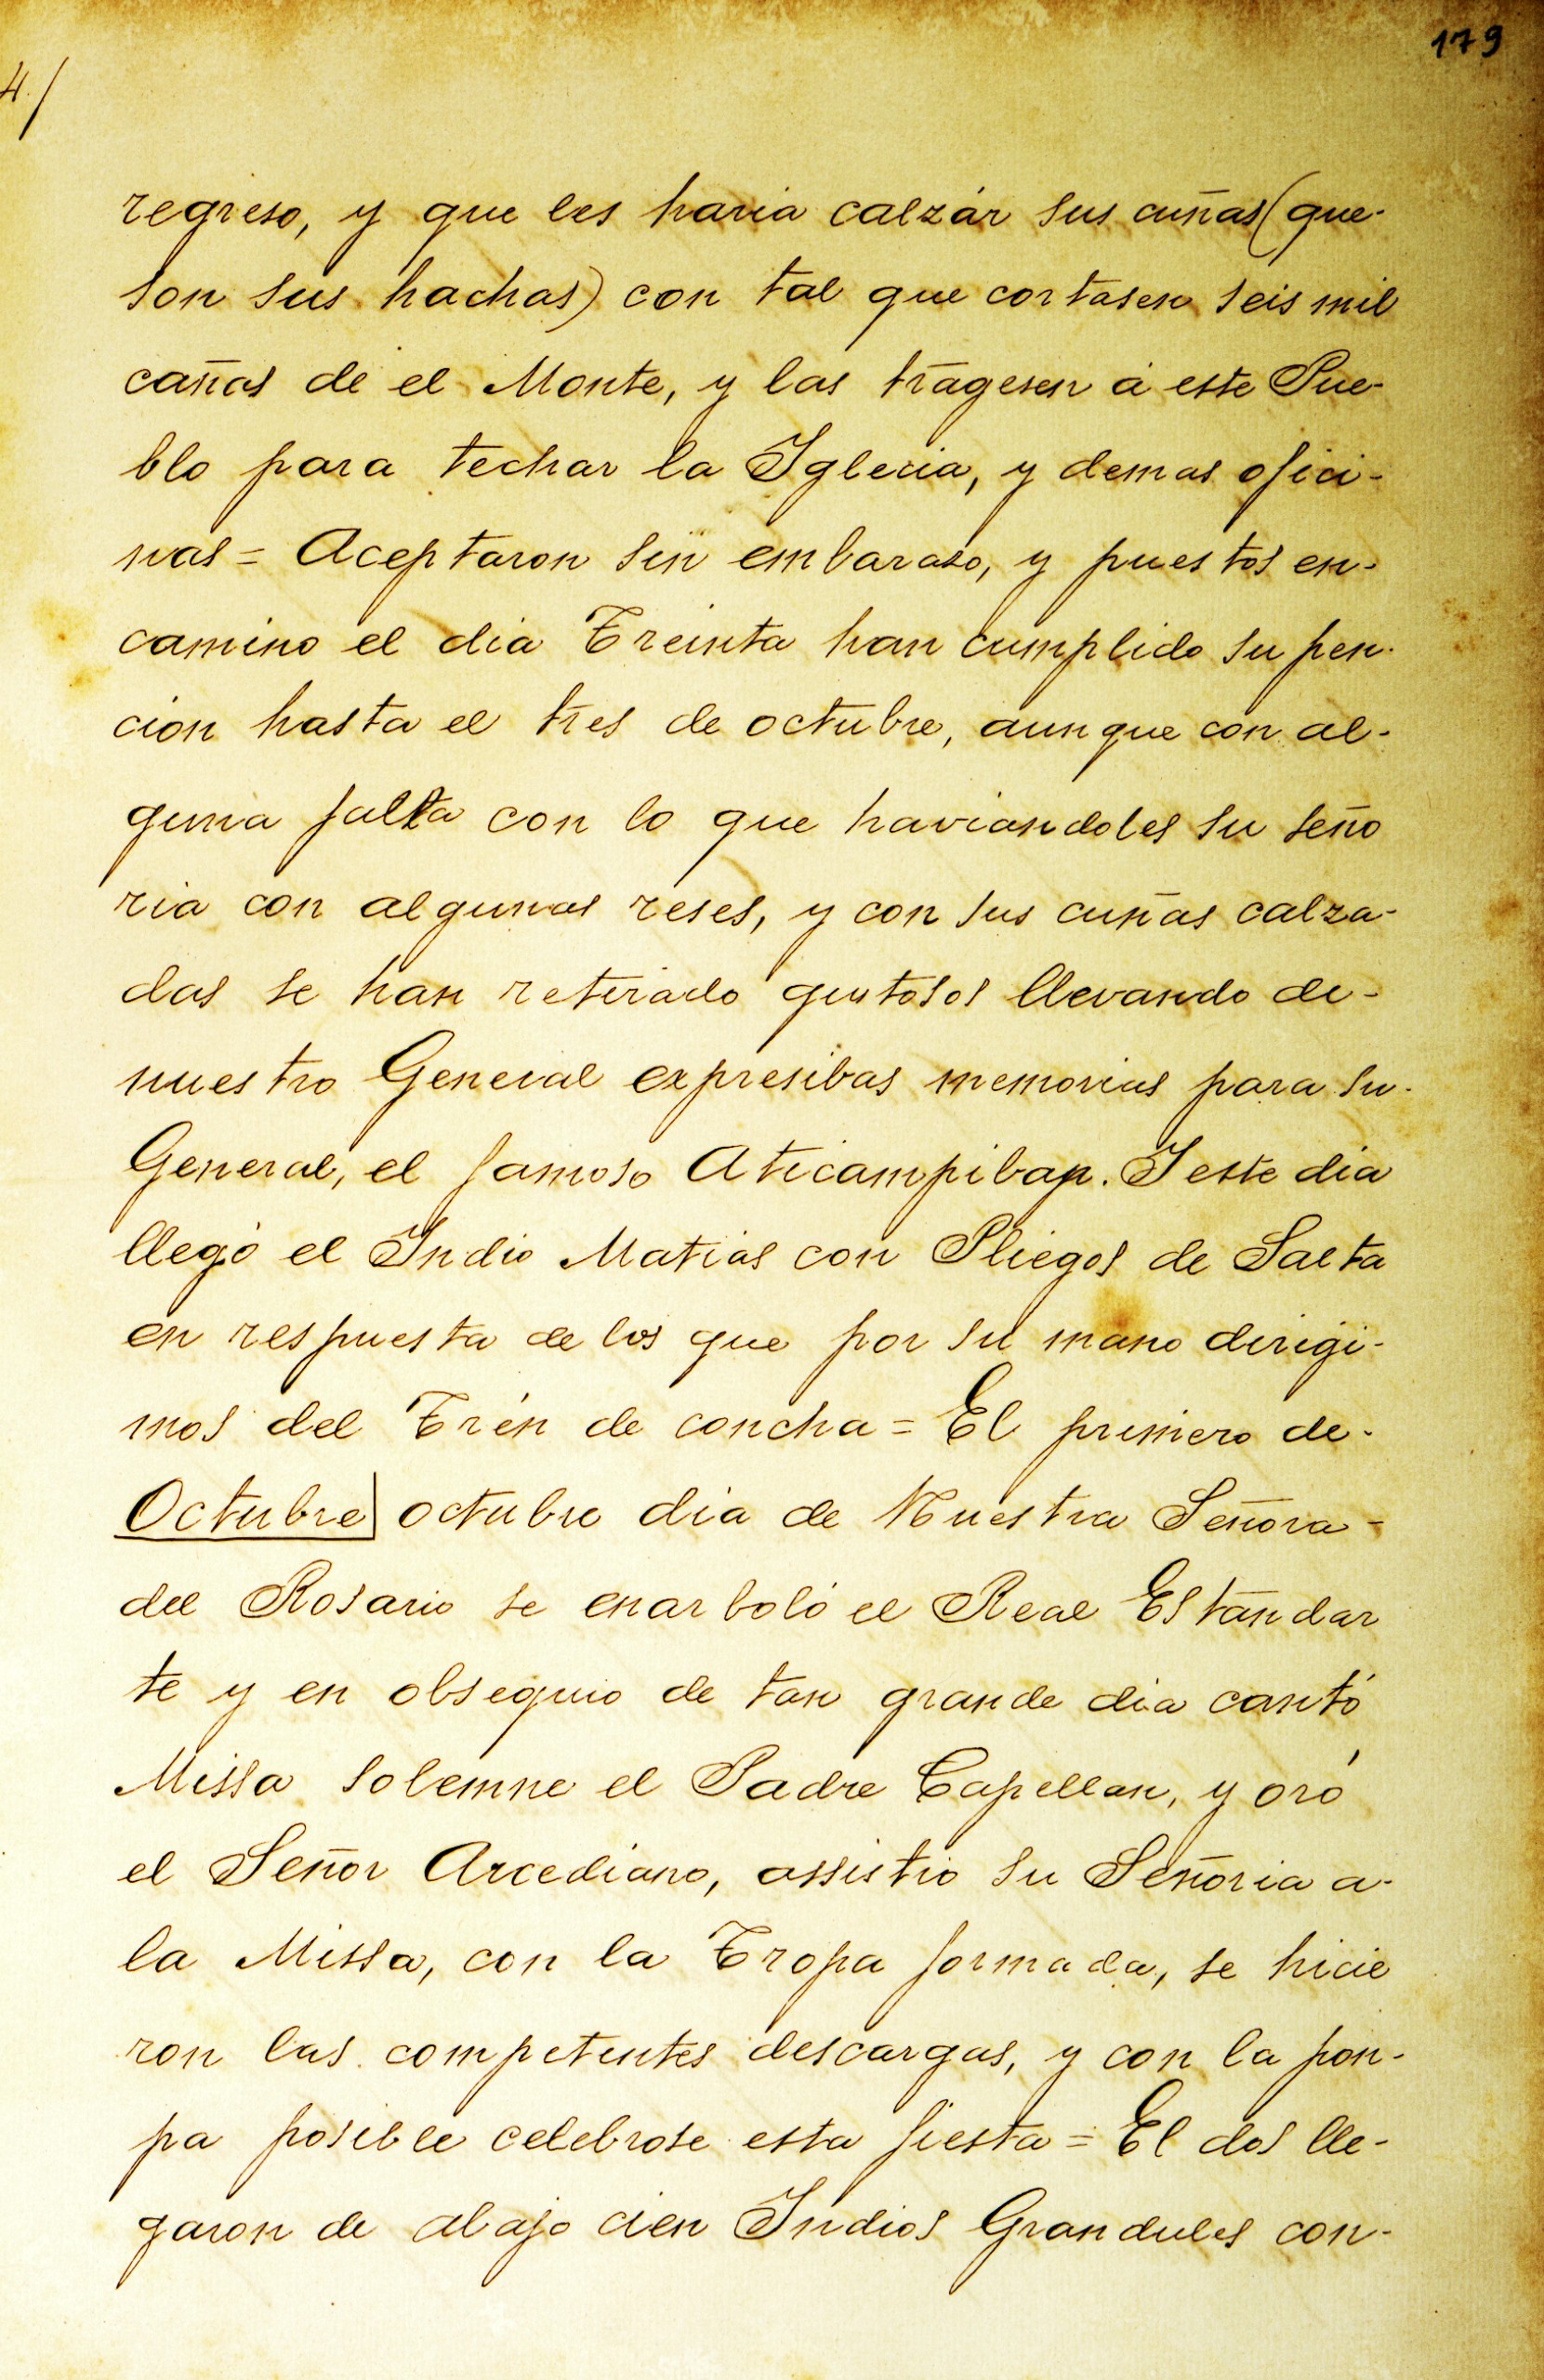 179
4/
regreso, y que les haria calzár sus cuñas (que-
son sus hachas) con tal que cortasen seis mil
cañas de el Monte, y las tragesen á este Pue-
blo para techar la Iglecia, y demas ofici-
nas = Aceptaron sin embaraso, y puestos en-
camino el dia Treinta han cumplido su pen-
cion hasta el tres de octubre, aunque con al-
guna falta con lo que haviandoles su seño
ria con algunas reses, y con sus cuñas calza-
das se han retirado gustosos llevando de-
nuestro General expresibas memorias para su-
General, el famoso Aticampibap. I este dia
llegó el Indio Matias con Pliegos de Salta
en respuesta de los que por su mano dirigi-
mos del Trén de concha = El primero de-
Octubre octubre dia de Nuestra Señora -
del Rosario se enarboló el Real Estandar
te y en obsequio de tan grande dia cantó
Missa solemne el Padre Capellan, y oró
el Señor Arcediano, assistio su Señoria a-
la Missa, con la Tropa formada, se hicie
ron las competentes descargas, y con la pon-
pa posible celebrose esta fiesta = El dos lle-
garon de abajo cien Indios Grandules con-